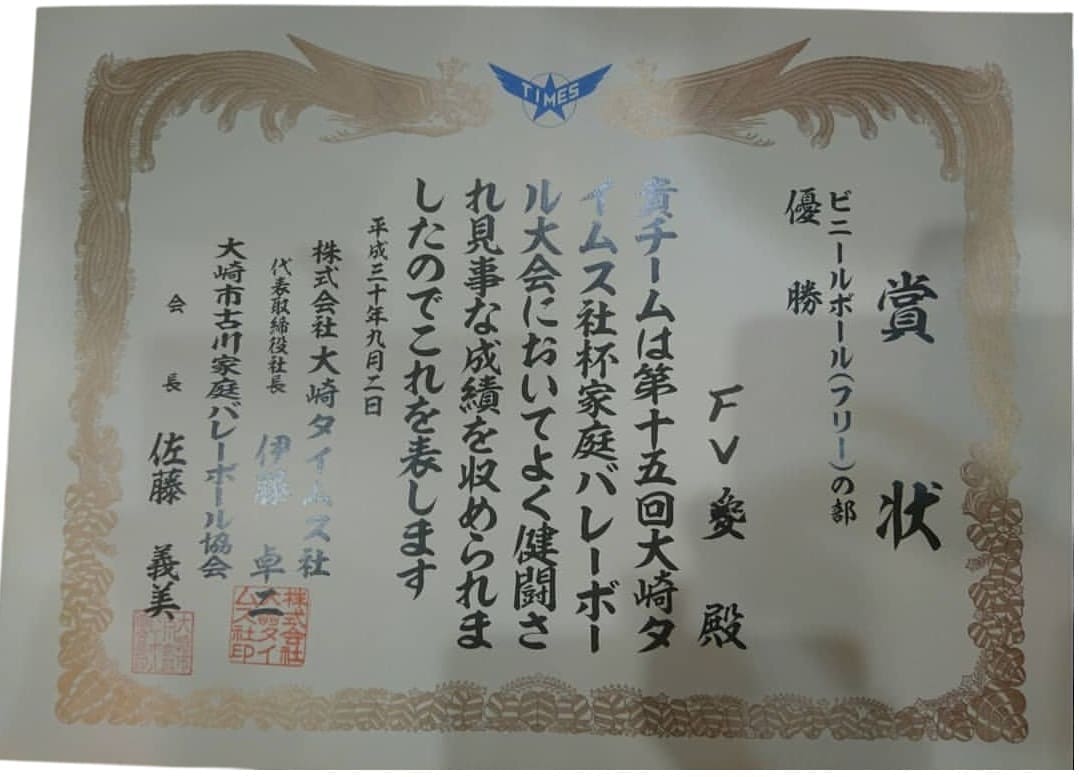 TIMES
賞状
ビニールボール(フリー)の部
優勝
FV愛殿
貴チームは第十五回大崎タ
イムス社杯家庭バレーボー
ル大会においてよく健闘さ
れ見事な成績を収められま
したのでこれを表します
平成三十年九月二日
株式会社大崎タイムス社
代表取締役社長 伊藤卓二
大崎市古川家庭バレーボール協会
会長 佐藤義美
株式会社
タイ
ムス社印